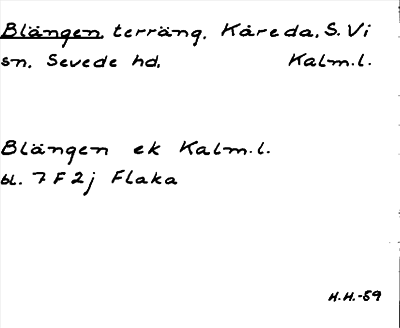 Blängen, terräng. Kåreda, S. Vi
sn. Sevede hd. Kalm.l.
Blängen ek Kalm.l.
bl. 7 F 2j Flaka
H.H.-59